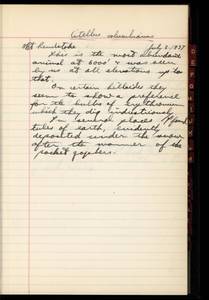 Citellus columbianus
Mt Revelstoke July 2, 1937
This is the most abundant
animal at 6000' & was seen
by us at all elevations up to
that.
On certain hillsides they
seem to show a preference
for the bulbs of Erythronium
which they dig industriously.
In several places I found
tubes of earth, evidently
deposited under the snow
after the manner of the
pocket gophers.